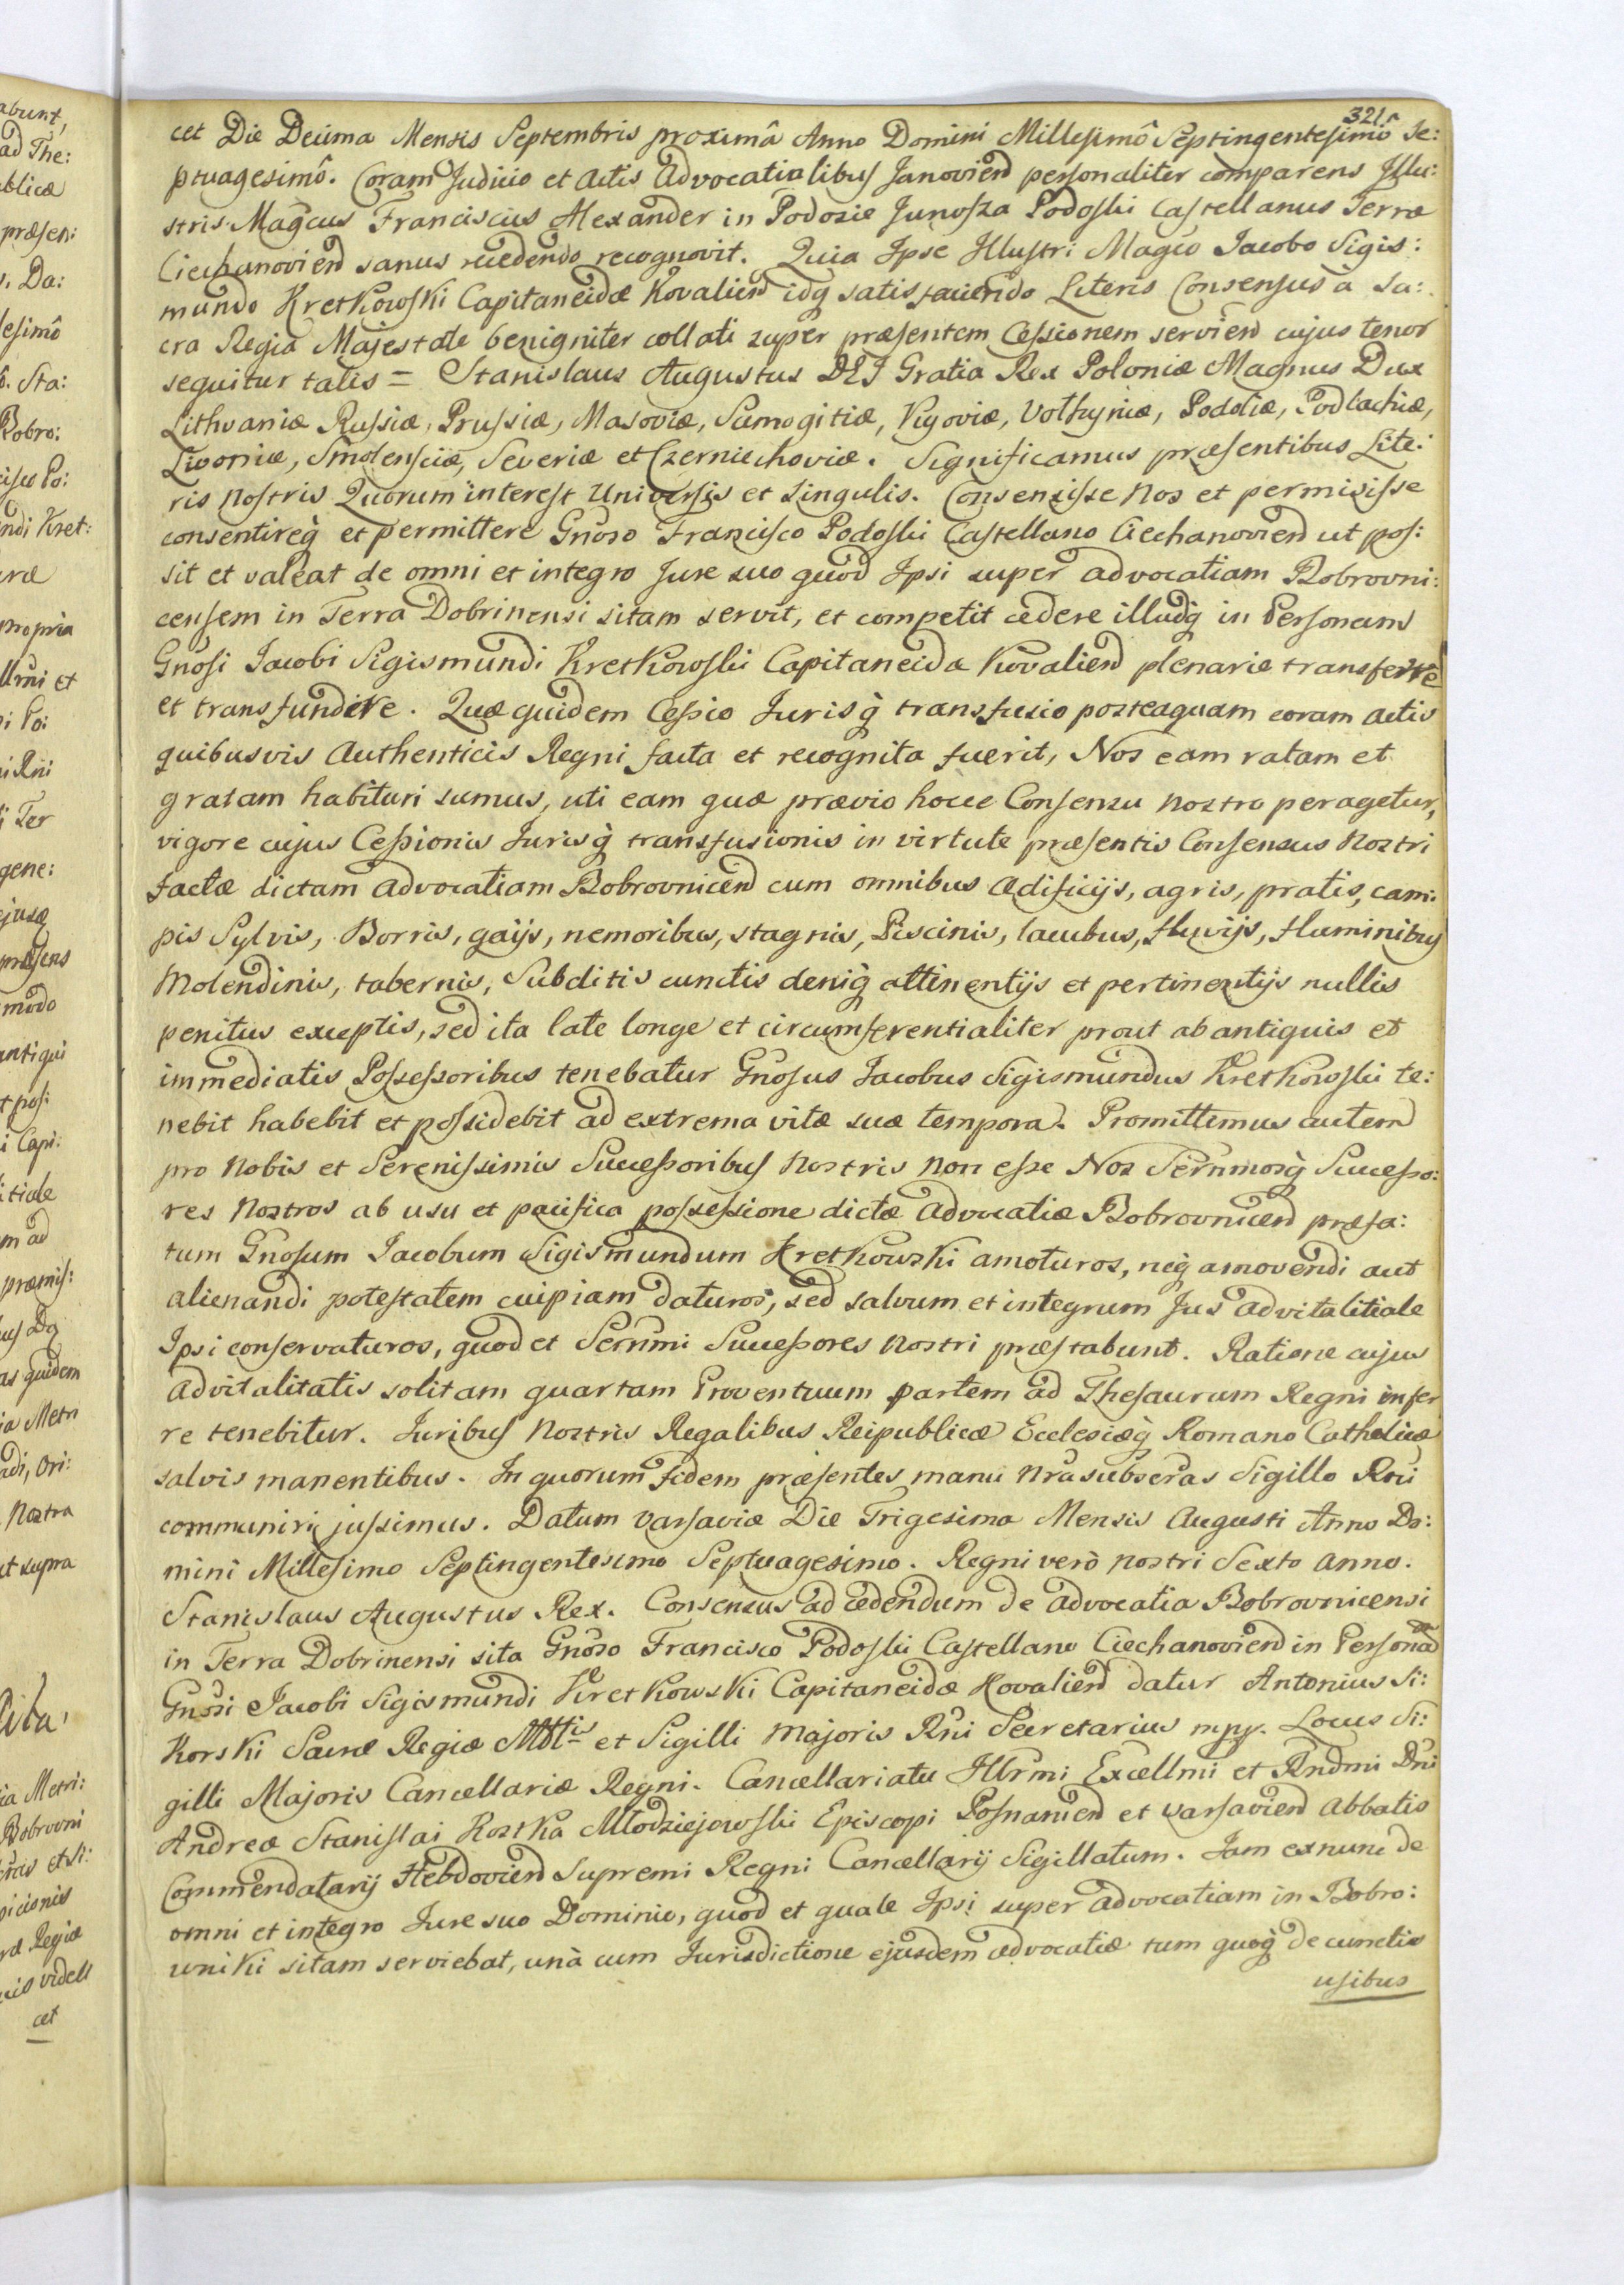 321.
cet Die Decima Mensis Septembris proximâ Anno Domini Millesimô Septingentesimô Se:
ptuagesimô. Coram Judicio et Actis Advocatialibus Janovien personaliter comparens Illu:
stris Magcus Franciscus Alexander in Podosie Junosza Podoski Castellanus Terræ
Ciechanovien sanus recedendo recognovit. Quia Ipse Illustr: Magco Jacobo Sigis:
mundo Kretkowski Capitaneidæ Kovalien idq satisfaciendo Literis Consensus a Sa:
cra Regia Majestate benigniter collati super præsentem Cessionem servien cujus tenor
sequitur talis = Stanislaus Augustus DEI Gratia Rex Poloniæ Magnus Dux
Lithvaniæ Russiæ, Prussiæ, Masoviæ, Samogitiæ, Kyoviæ, Volhyniæ, Podoliæ, Podlachiæ,
Livoniæ, Smolensciæ, Severiæ et Czerniechoviæ. Significamus præsentibus Lite:
ris Nostris Quorum interest Universis et singulis. Consensisse Nos et permisisse
consentireq̀ et permittere Gnoso Francisco Podoski Castellano Ciechanovien ut pos:
sit et valeat de omni et integro Jure suo quod Ipsi super advocatiam Bobrovni:
censem in Terra Dobrinensi sitam servit, et competit cedere illudq̀ in Personam
Gnosi Jacobi Sigismundi Kretkowski Capitaneida Kovalien plenarie transferre
et transfundere. Quæ quidem Cessio Jurisq̀ transfusio posteaquam coram actis
quibusvis Authenticis Regni facta et recognita fuerit, Nos eam ratam et
gratam habituri sumus, uti eam quæ prævio hocce Consensu nostro peragetur,
vigore cujus Cessionis Jurisq̀ transfusionis in virtute præsentis Consensus Nostri
factæ dictam advocatiam Bobrovnicen cum omnibus ædificijs, agris, pratis, cam:
pis Sylvis, Borris, gaijs, nemoribus, stagnis, Piscinis, lacubus, fluvijs, fluminibus
Molendinis, tabernis, Subditis cunctis deniq̀ attinentijs et pertinentijs nullis
penitus exceptis, sed ita late longe et circumferentialiter prout ab antiquis et
immediatis Possessoribus tenebatur Gnosus Jacobus Sigismundus Kretkowski te:
nebit habebit et possidebit ad extrema vitæ suæ tempora. Promittimus autem
pro Nobis et Serenissimis Successoribus Nostris non esse Nos Sernmosq̀ Successo:
res Nostros ab usu et pacifica possessione dictæ Advocatiæ Bobrovnicen præfa:
tum Gnosum Jacobum Sigismundum Kretkowski amoturos, neq̀ amovendi aut
alienandi potestatem cuipiam daturos, sed salvum et integrum Jus advitalitiale
Ipsi conservaturos, quod et Sernmi Successores Nostri præstabunt. Ratione cujus
advitalitatis solitam quartam Proventuum partem ad Thesaurum Regni infer
re tenebitur. Juribus Nostris Regalibus Reipublicæ Ecclesiæq̀ Romano Catholicæ
salvis manentibus. In quorum fidem præsentes manu nra subscras Sigillo Rni
communiri jussimus. Datum Varsaviæ Die Trigesima Mensis Augusti Anno Do:
mini Millesimo Septingentesimo Septuagesimo. Regni verò nostri Sexto anno.
Stanislaus Augustus Rex. Consensus ad cedendum de Advocatia Bobrovnicensi
in Terra Dobrinensi sita Gnoso Francisco Podoski Castellano Ciechanovien in Personam
Gnosi Jacobi Sigismundi Kretkowski Capitaneidæ Kovalien datur Antonius Si:
korski Sacræ Regiæ Mttis et Sigilli Majoris Rni Secretarius mpp. Locus Si:
gilli Majoris Cancellariæ Regni. Cancellariatu Illrmi Excellmi et Rndmi Dni
Andreæ Stanislai Kostka Młodziejowski Episcopi Posnanien et Varsavien Abbatis
Commendatarij Hebdovien Supremi Regni Cancellarij Sigillatum. Jam exnunc de
omni et integro Jure suo Dominio, quod et quale Ipsi super advocatiam in Bobro:
wniki sitam serviebat, unà cum Jurisdictione ejusdem advocatiæ tum quoq̀ de cunctis
usibus